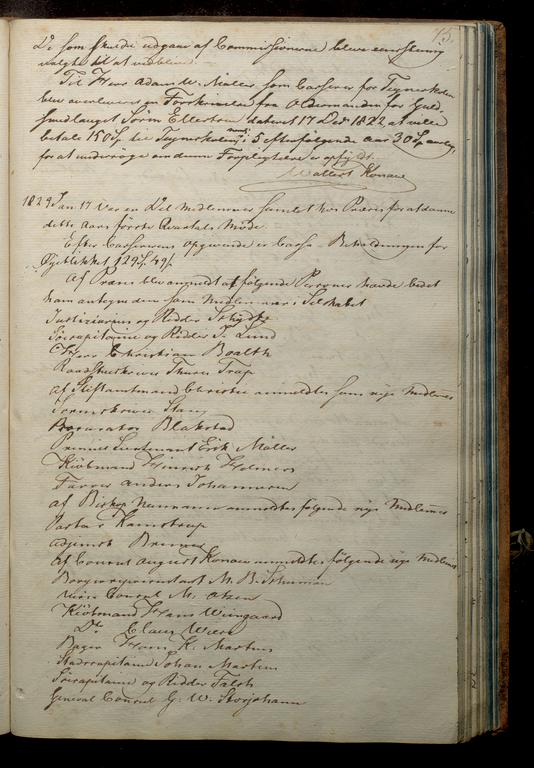 75.
De som skulde udgaae af Commissionerne bleve eenstemmig
valgte til at vedblive
Til Herr Adam W. Møller som Casserer for Tegneskolen
blev overleveret en Forskrivelse fra Oldermanden for Guld-
smedlauget dateret 17 Dec 1822 at ville
betale 150 Sp. til Tegneskolen, i 5 efterfølgende Aar 30 Sp. aarlig,
for at undersøge om denne Forpligtelse er opfyldt.
Wollert Konow
1829 Jan 17 Var en Deel Medlemmer samlet hos Præses for at danne
dette Aars første Qvartals Møde.
Efter Casserens Opgivende er Cassa-Beholdningen for
Øjeblikket 129 Sp. 49 s.
Af Præses blev anmeldt at følgende Personer havde bedet
ham antegne dem som Medlemmer i Selskabet
Justitiarius og Ridder
Søecapitaine og Ridder Lund
Herr Christian Boalth
Raadstueskriver Thurs Trap
af Stiftamtmand Christie anmeldtes som nye Medlemmer
Sorenskriver Stang
Procurator Blakstad
Premier Lieutenant Erik Møller
Kiøbmand Hinrich
Farver Anders Johannesen
af Biskop Neumann anmeldtes følgende nye Medlemmer
Pastor Kamstrup
Adjunct
af Consul August Konow anmeldtes følgende nye Medlemmer
Borgerrepræsentant M. B.
Vice Consul M.
Kiøbmand Hans Wiingaard
Do Claus Wiese
Bager Hans H. Martens
Stadscapitaine Johan Martens
Søecapitaine og Ridder Falch
General Consul G. W. Storjohann